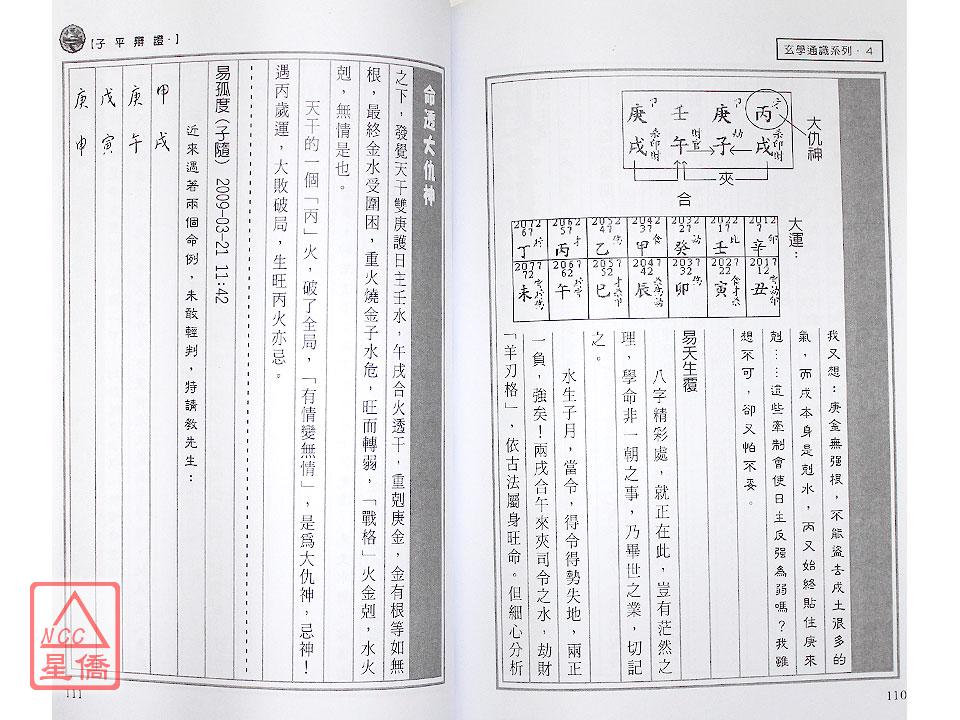 玄學通識系列．4
大仇神
庚 壬 庚 丙
戌 午 子 戌
夾
合
大運：
2072 2062 2052 2042 2032 2022 2012
67 57 47 37 27 17 7
丁 丙 乙 甲 癸 壬 辛
2077 2067 2057 2047 2037 2027 2017
72 62 52 42 32 22 12
未 午 巳 辰 卯 寅 丑
我又想：庚金無強根，不能盜去戌土很多的
氣，而戌本身是剋水，丙又始終貼住庚來
剋……這些牽制會使日生反強為弱嗎？我雖
想不可，卻又怕不妥。
易天生覆
八字精彩處，就正在此，豈有茫然之
理，學命非一朝之事，乃畢世之業，切記
之。
水生子月，當令，得令得勢失地，兩正
一負，強矣！兩戌合午來夾司令之水，劫財
「羊刃格」，依古法屬身旺命。但細心分析
110
【子平辯證．】
命透大仇神
之下，發覺天干雙庚護日主壬水，午戌合火透干，重剋庚金，金有根等如無
根，最終金水受圍困，重火燒金子水危，旺而轉弱，「戰格」火金剋，水火
剋，無情是也。
天干的一個「丙」火，破了全局，「有情變無情」，是為大仇神，忌神！
遇丙歲運，大敗破局，生旺丙火亦忌。
易孤度（子隨） 2009-03-21 11:42
近來遇著兩個命例，未敢輕判，特請教先生：
甲戌
庚午
戊寅
庚申
111
NCC
星僑